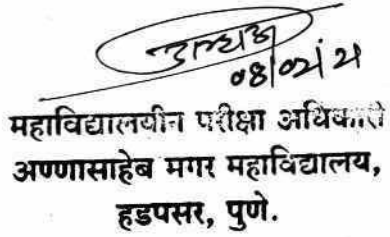 ०४/०२/२१
महाविद्यालयीन परीक्षा अधिकारी
अण्णासाहेब मगर महाविद्यालय,
हडपसर, पुणे.